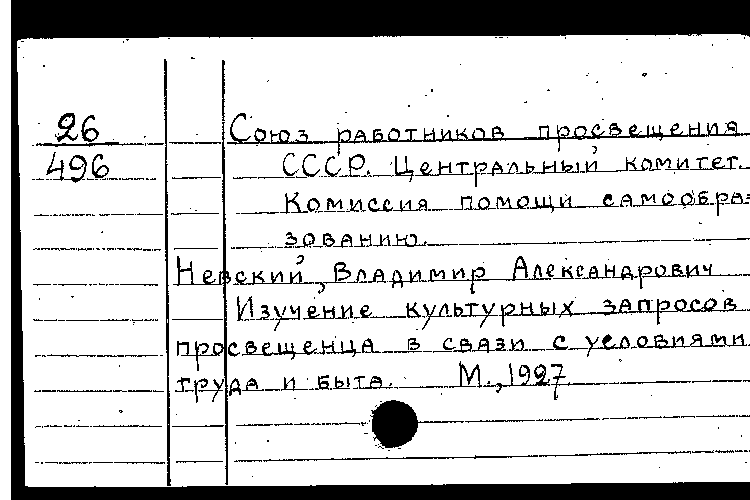 26
496
Союз работников просвещения
СССР. Центральный комитет.
Комиссия помощи самообра=
зованию.
Невский, Владимир Александрович
Изучение культурных запросов
просвещенца в связи с условиями
труда и быта. М., 1927